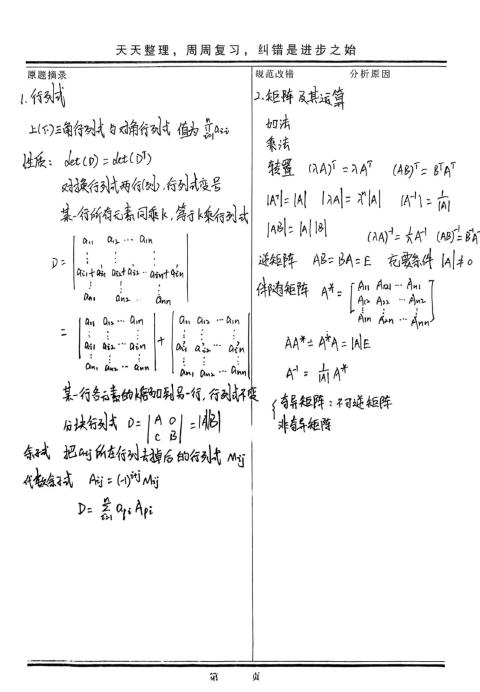 天天整理，周周复习，纠错是进步之始
原题摘录
规范改错 分析原因
1.行列式
上(下)三角行列式与对角行列式 值为 ∏_{i=1}^{n} a_{ii}
性质： det(D) = det(D^T)
对换行列式两行(列)，行列式变号
某一行所有元素同乘k，等于k乘行列式
D = | a_{11} a_{12} … a_{1n} |
| ⋮ ⋮ ⋮ |
| a_{i1}+a'_{i1} a_{i2}+a'_{i2} … a_{in}+a'_{in} |
| ⋮ ⋮ ⋮ |
| a_{n1} a_{n2} … a_{nn} |
= | a_{11} a_{12} … a_{1n} | + | a_{11} a_{12} … a_{1n} |
| ⋮ ⋮ ⋮ | | ⋮ ⋮ ⋮ |
| a_{i1} a_{i2} … a_{in} | | a'_{i1} a'_{i2} … a'_{in} |
| ⋮ ⋮ ⋮ | | ⋮ ⋮ ⋮ |
| a_{n1} a_{n2} … a_{nn} | | a_{n1} a_{n2} … a_{nn} |
某一行各元素的k倍加到另一行，行列式不变
分块行列式 D = | A 0 | = |A||B|
| C B |
余子式 把a_{ij}所在行列去掉后的行列式 M_{ij}
代数余子式 A_{ij} = (-1)^{i+j} M_{ij}
D = ∑_{i=1}^{n} a_{pi} A_{pi}
2.矩阵及其运算
加法
乘法
转置 (λA)^T = λA^T (AB)^T = B^T A^T
|A^T| = |A| |λA| = λ^n |A| |A^{-1}| = 1/|A|
|AB| = |A||B| (λA)^{-1} = 1/λ A^{-1} (AB)^{-1} = B^{-1}A^{-1}
逆矩阵 AB = BA = E 充要条件 |A| ≠ 0
伴随矩阵 A* = [ A_{11} A_{21} … A_{n1} ]
[ A_{12} A_{22} … A_{n2} ]
[ A_{1n} A_{2n} … A_{nn} ]
AA* = A*A = |A|E
A^{-1} = 1/|A| A*
{ 奇异矩阵：不可逆矩阵
非奇异矩阵
第 页